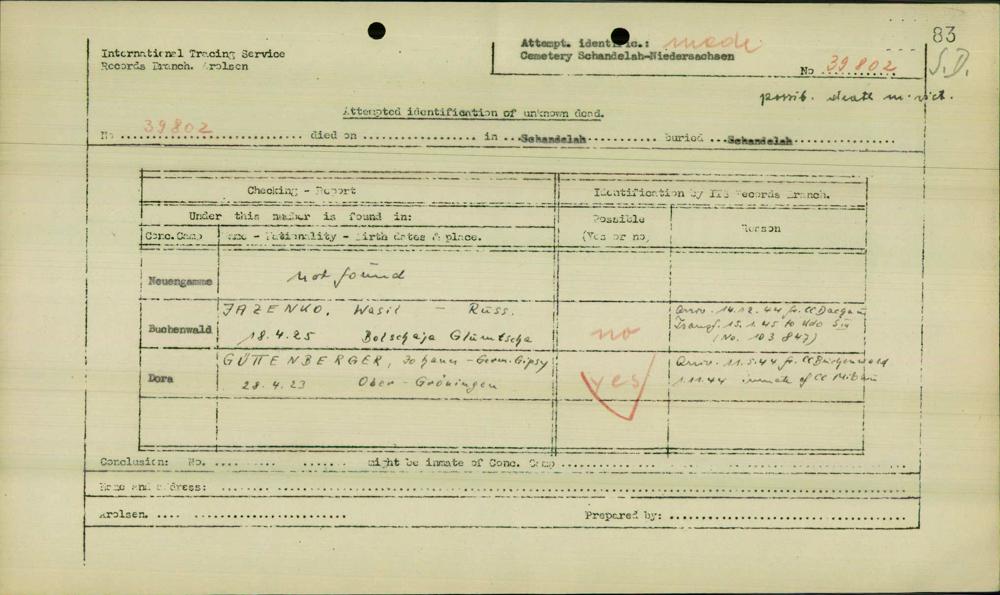 83
International Tracing Service
Records Branch. Arolsen
Attempt. identific.: made
Cemetery Schandelah-Niedersachsen
No 39802
S.D.
possib. death m. vict.
Attempted identification of unknown dead.
No 39802 died on in Schandelah buried Schandelah
Checking - Report
Identification by ITS Records Branch.
Under this number is found in:
Possible
(Yes or no)
Reason
Conc.Camp
Name - Nationality - Birth dates & place.
Neuengamme
not found
Buchenwald
JAZENKO, Wasil - Russ.
18.4.25 Bolschaja Gluntscha
no
Arriv. 14.12.44 fr. CC Dachau
Transf. 15.1.45 to Kdo SIII
(No. 103 847)
Dora
GÜTTENBERGER, Johann - Germ. Gipsy
28.4.23 Ober-Gröningen
yes
Arriv. 11.5.44 fr. CC Buchenwald
1.11.44 inmate of CC Mittelbau
Conclusion: No. might be inmate of Conc. Camp
Name and address:
Arolsen.
Prepared by: